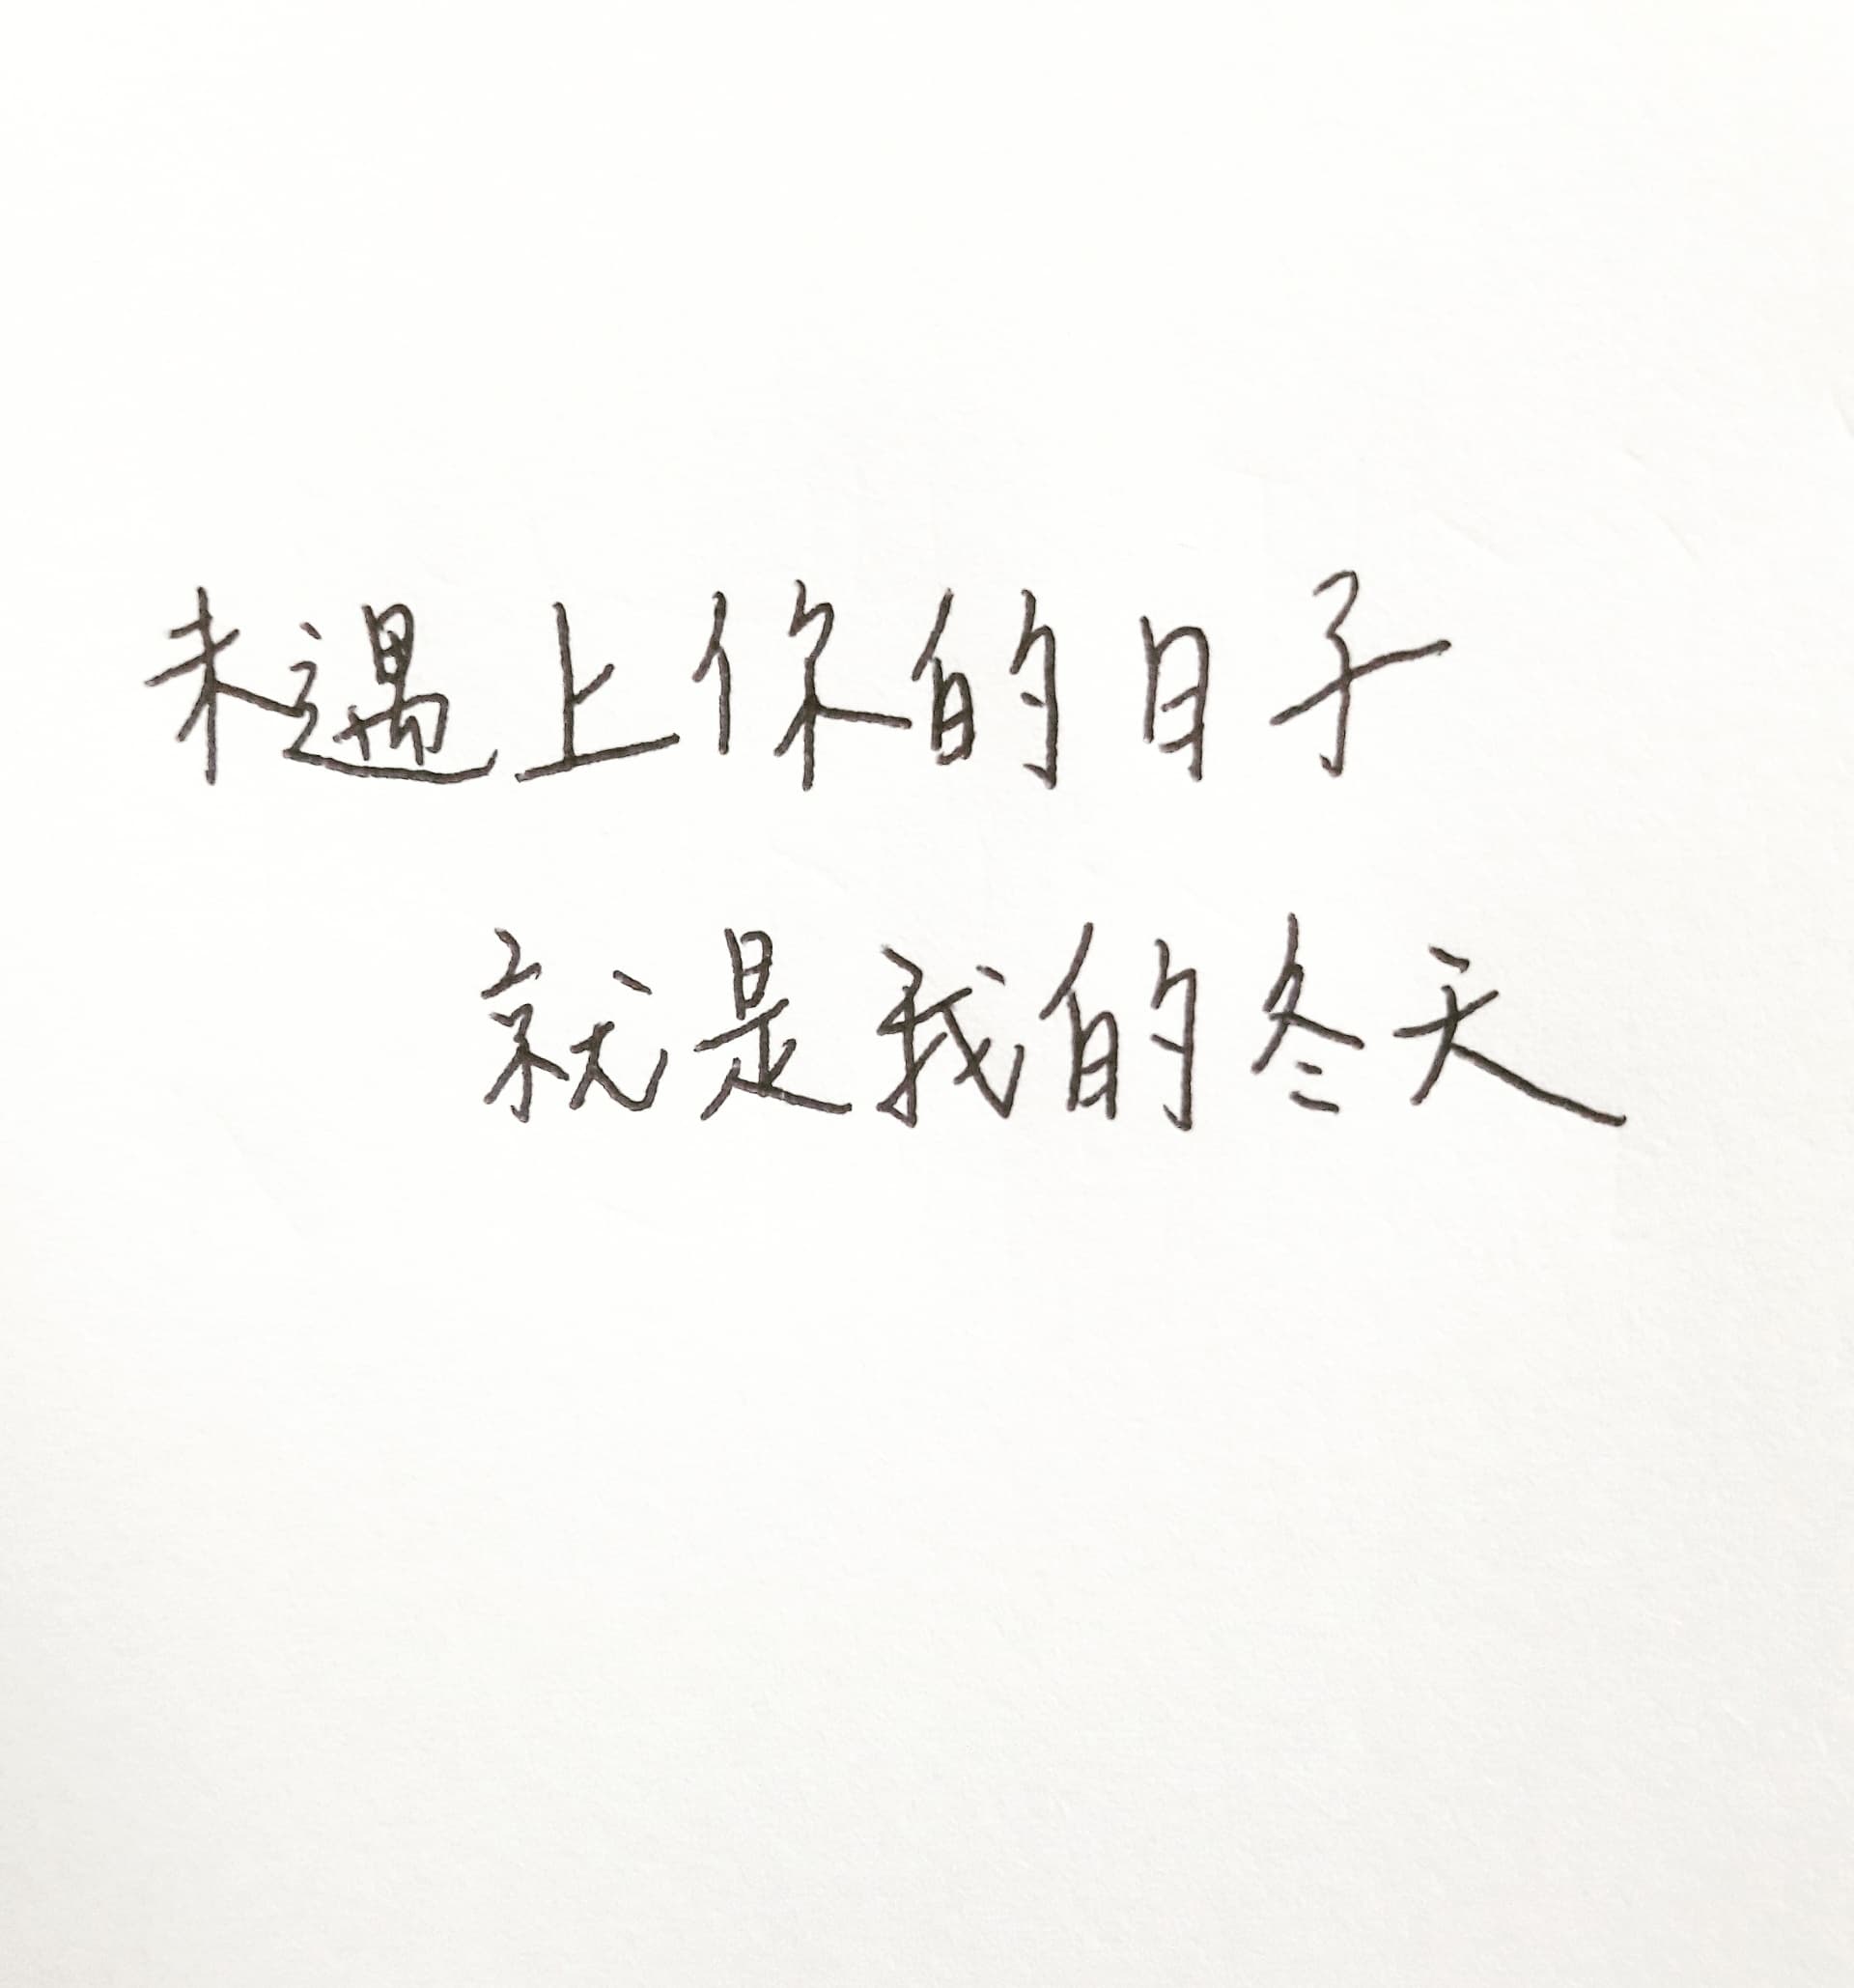 未遇上你的日子
就是我的冬天